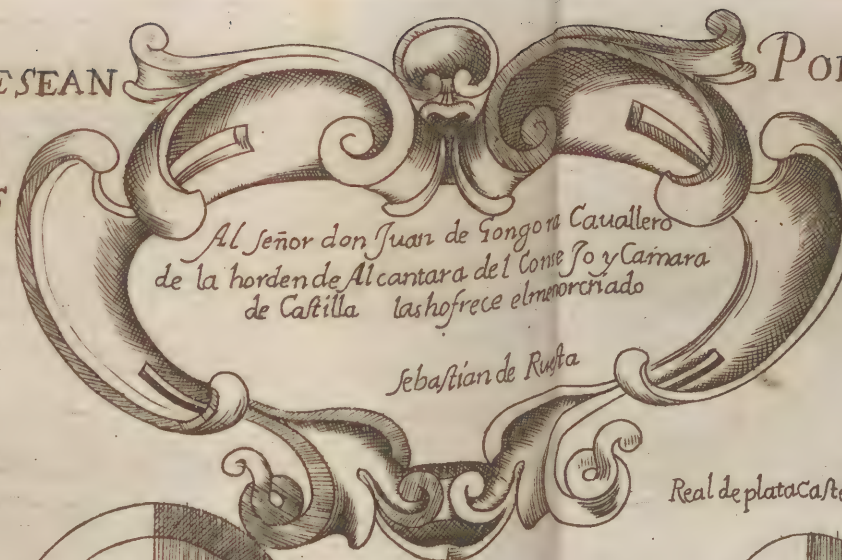 ESEAN
Al señor don Juan de Gongora Cauallero
de la horden de Alcantara del ConseJo y Camara
de Castilla las hofrece el menor criado
Sebastian de Ruesta
Real de plata